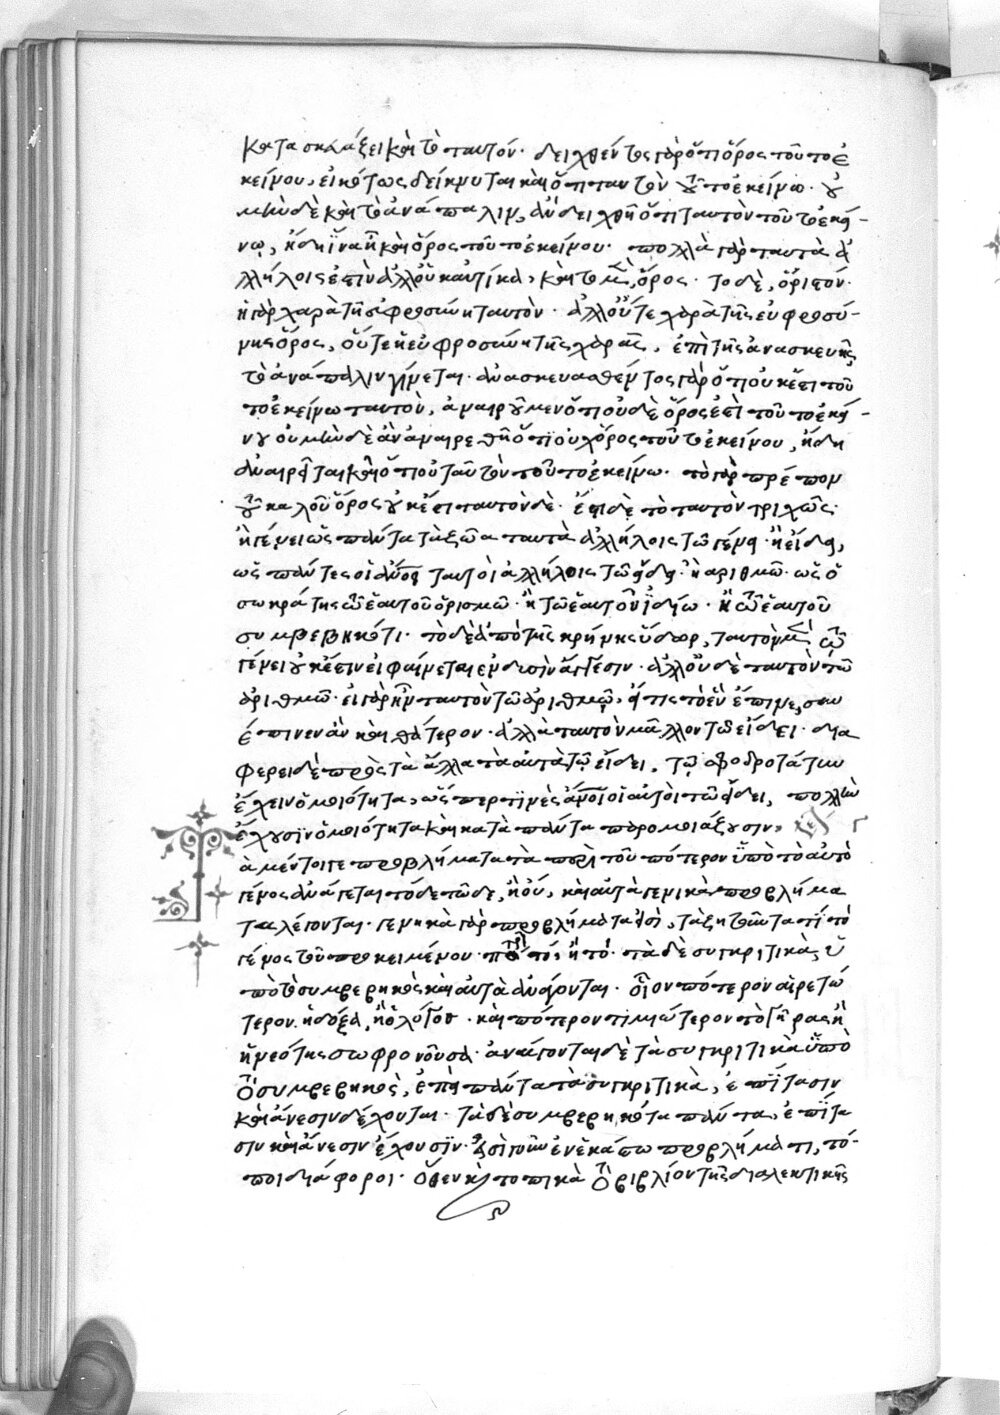 κατασκευάζει καὶ τὸ ταυτόν· δειχθέντος γὰρ ὅτι ὅρος τοῦτο ἐ
κείνου, εἰκότως δείκνυται καὶ ὅτι ταυτὸν τοῦτο ἐκείνω· οὐ
μὴν δὲ καὶ τὸ ἀνάπαλιν, ἂν δειχθῆ ὅτι ταυτὸν τοῦτο ἐκεί-
νῳ, ἤδη ἵνα ἦ καὶ ὅρος τοῦτο ἐκείνου· πολλὰ γὰρ ταυτὰ ἀ
λλήλοις ἐστὶν ἀλλ' οὐκ αὐτίκα, καὶ τὸ μὲν, ὅρος· τὸ δὲ, ὁριστόν·
ἡ γὰρ χαρὰ τῆ εὐφροσύνη ταυτὸν· ἀλλ' οὔτε χαρὰ τῆς εὐφροσύ-
νης ὅρος, οὔτε ἡ εὐφροσύνη τῆς χαρᾶς, ἐπὶ τῆς ἀνασκευῆς
τὸ ἀνάπαλιν γίνεται· ἀνασκευασθέντος γὰρ ὅτι οὐκ ἔστι τοῦ
το ἐκείνω ταυτὸν, ἀναιρούμεν ὅτι οὐδὲ ὅρος ἐστὶ τοῦτο ἐκεί-
νου οὐ μὴν δὲ ἂν ἀναιρεθῆ ὅτι οὐχ ὅρος τοῦτο ἐκείνου, ἤδη
ἀναιρεῖται καὶ ὅτι οὐ ταυτὸν τοῦτο ἐκείνω· τὸ γὰρ πρέπον
τοῦ καλοῦ ὅρος οὐκ ἔστι ταυτὸν δέ· ἔστι δὲ τὸ ταυτὸν τριχῶς·
ἢ γένει ὡς πάντα τὰ ζῶα ταυτὰ ἀλλήλοις τῶ γένει· ἢ εἴδει,
ὡς πάντες οἱ ἄνθρωποι ταυτοὶ ἀλλήλοις τῶ εἴδει· ἢ ἀριθμῶ· ὡς ὁ
σωκράτης τῶ ἑαυτοῦ ὁρισμῶ· ἢ τῶ ἑαυτοῦ ἰδίω· ἢ τῶ ἑαυτοῦ
συμβεβηκότι· τὸ δὲ ἀπὸ τῆς κρήνης ὕδωρ, ταυτὸν μὲν τῶ
γένει οὐκ ἔστιν εἰ φαίνεται ἐμδισὶν ἄγγεσιν· ἀλλ' οὐδὲ ταυτὸν τῶ
ἀριθμῶ· εἰ γὰρ ἦν ταυτὸν τῶ ἀριθμῶ, εἴ τις τὸ ἓν ἔπινεν,
ἔπινεν ἂν καὶ θάτερον· ἀλλὰ ταυτὸν μᾶλλον τῶ εἴδει· δια
φέρει δὲ πρὸς τὰ ἄλλα τὰ αὐτὰ τῶ εἴδει, τῷ σφοδροτάτην
ἔχειν ὁμοιότητα, ὥσπερ τινὲς ἄνθρωποι οἱ αὐτοὶ τῶ εἴδει, πολλὴν
ἔχουσιν ὁμοιότητα καὶ κατὰ πάντα παρομοιάζουσιν,
Τὰ μέντοιγε προβλήματα τὰ περὶ τοῦ πότερον ὑπὸ τὸ αὐτὸ
γένος ἀνάγεται τόδε τῶδε, ἢ οὐ, καὶ αὐτὰ γενικὰ προβλήμα
τα λέγονται· γενικὰ γὰρ προβλήματα εἰσὶ, τὰ ζητοῦντα τί τὸ
γένος τοῦ προκειμένου· πότερον τό, ἢ τό· τὰ δὲ συγκριτικὰ, ὑ
πὸ τὸ συμβεβηκὸς καὶ αὐτὰ ἀνάγονται· οἷον πότερον αἱρετώ
τερον ἡ δόξα, ἢ ὁ λόγος· καὶ πότερον τιμιώτερον τὸ γῆρας ἢ
ἡ νεότης σωφρονοῦσα· ἀνάγονται δὲ τὰ συγκριτικὰ ὑπὸ
τὸ συμβεβηκὸς, ἐπεὶ πάντα τὰ συγκριτικὰ, ἐπίτασιν
καὶ ἄνεσιν δέχονται· τὰ δὲ συμβεβηκότα πάντα, ἐπίτα
σιν καὶ ἄνεσιν ἔχουσιν· εἰσὶ γοῦν ἐν ἑκάστω προβλήματι, τό-
ποι διάφοροι· ὅθεν καὶ τοπικὰ τὸ βιβλίον τῆς διαλεκτικῆς